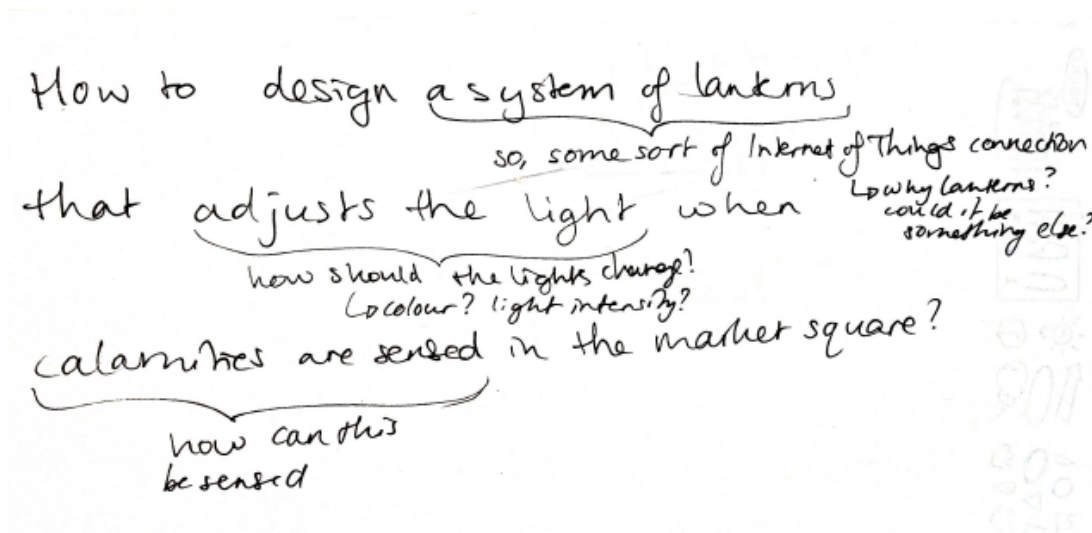 How to design a system of lanterns
so, some sort of Internet of Things connection
↳ why lanterns?
could it be
something else?
that adjusts the light when
how should the lights change?
↳ colour? light intensity?
calamities are sensed in the market square?
how can this
be sensed